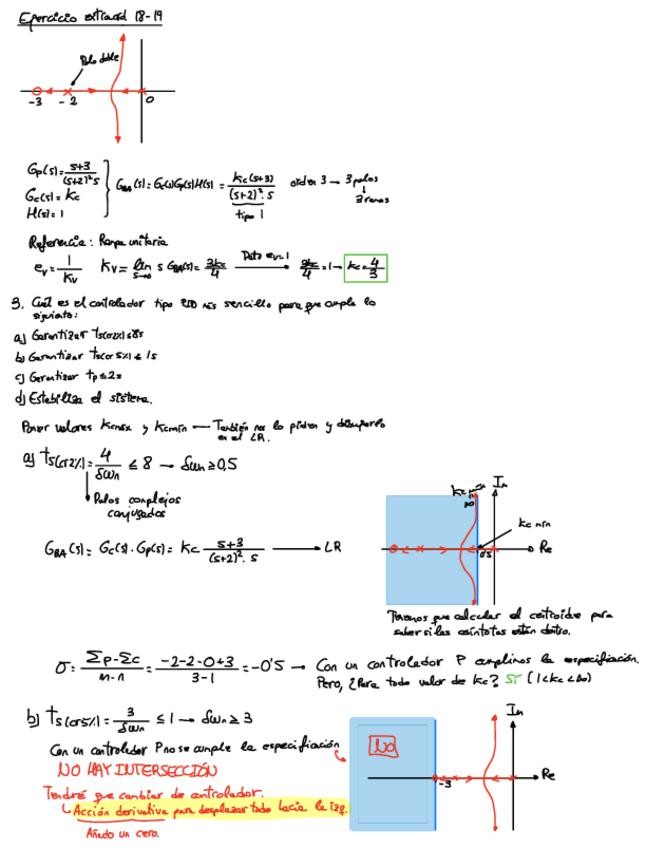 Ejercicio extraord 18-19
Polo doble
-3 -2 0
Gp(s) = s+3 / (s+2)² s
Gc(s) = Kc
H(s) = 1
GBA(s) = Gc(s) Gp(s) H(s) = Kc(s+3) / (s+2)² · s
tipo 1
orden 3 → 3 polos
↓
3 ramas
Referencia: Rampa unitaria
ev = 1/Kv Kv = lim s→0 s GBA(s) = 3Kc/4 Dato ev=1 → 3Kc/4 = 1 → Kc = 4/3
3. Cuál es el controlador tipo PID más sencillo para que cumpla lo
siguiente:
a) Garantizar ts(cr2%) ≤ 8s
b) Garantizar ts(cr5%) ≤ 1s
c) Garantizar tp ≤ 2s
d) Estabiliza el sistema.
Poner valores Kcmáx y Kcmín — También nos lo piden y dibujarlo
en el LR.
a) ts(cr2%) = 4/δωn ≤ 8 → δωn ≥ 0,5
Polos complejos
conjugados
GBA(s) = Gc(s) · Gp(s) = Kc s+3 / (s+2)² · s → LR
Im
Kc mín
0,5
Re
Tenemos que calcular el centroide para
saber si las asíntotas están dentro.
σ = Σp - Σc / m-n = -2-2-0+3 / 3-1 = -0'5 → Con un controlador P cumplimos la especificación.
Pero, ¿Para todo valor de Kc? SÍ (1<Kc<∞)
b) ts(cr5%) = 3/δωn ≤ 1 → δωn ≥ 3
Con un controlador P no se cumple la especificación
NO HAY INTERSECCIÓN
Tendré que cambiar de controlador.
Acción derivativa para desplazar todo hacia la izq.
Añado un cero.
No
Im
-3
Re